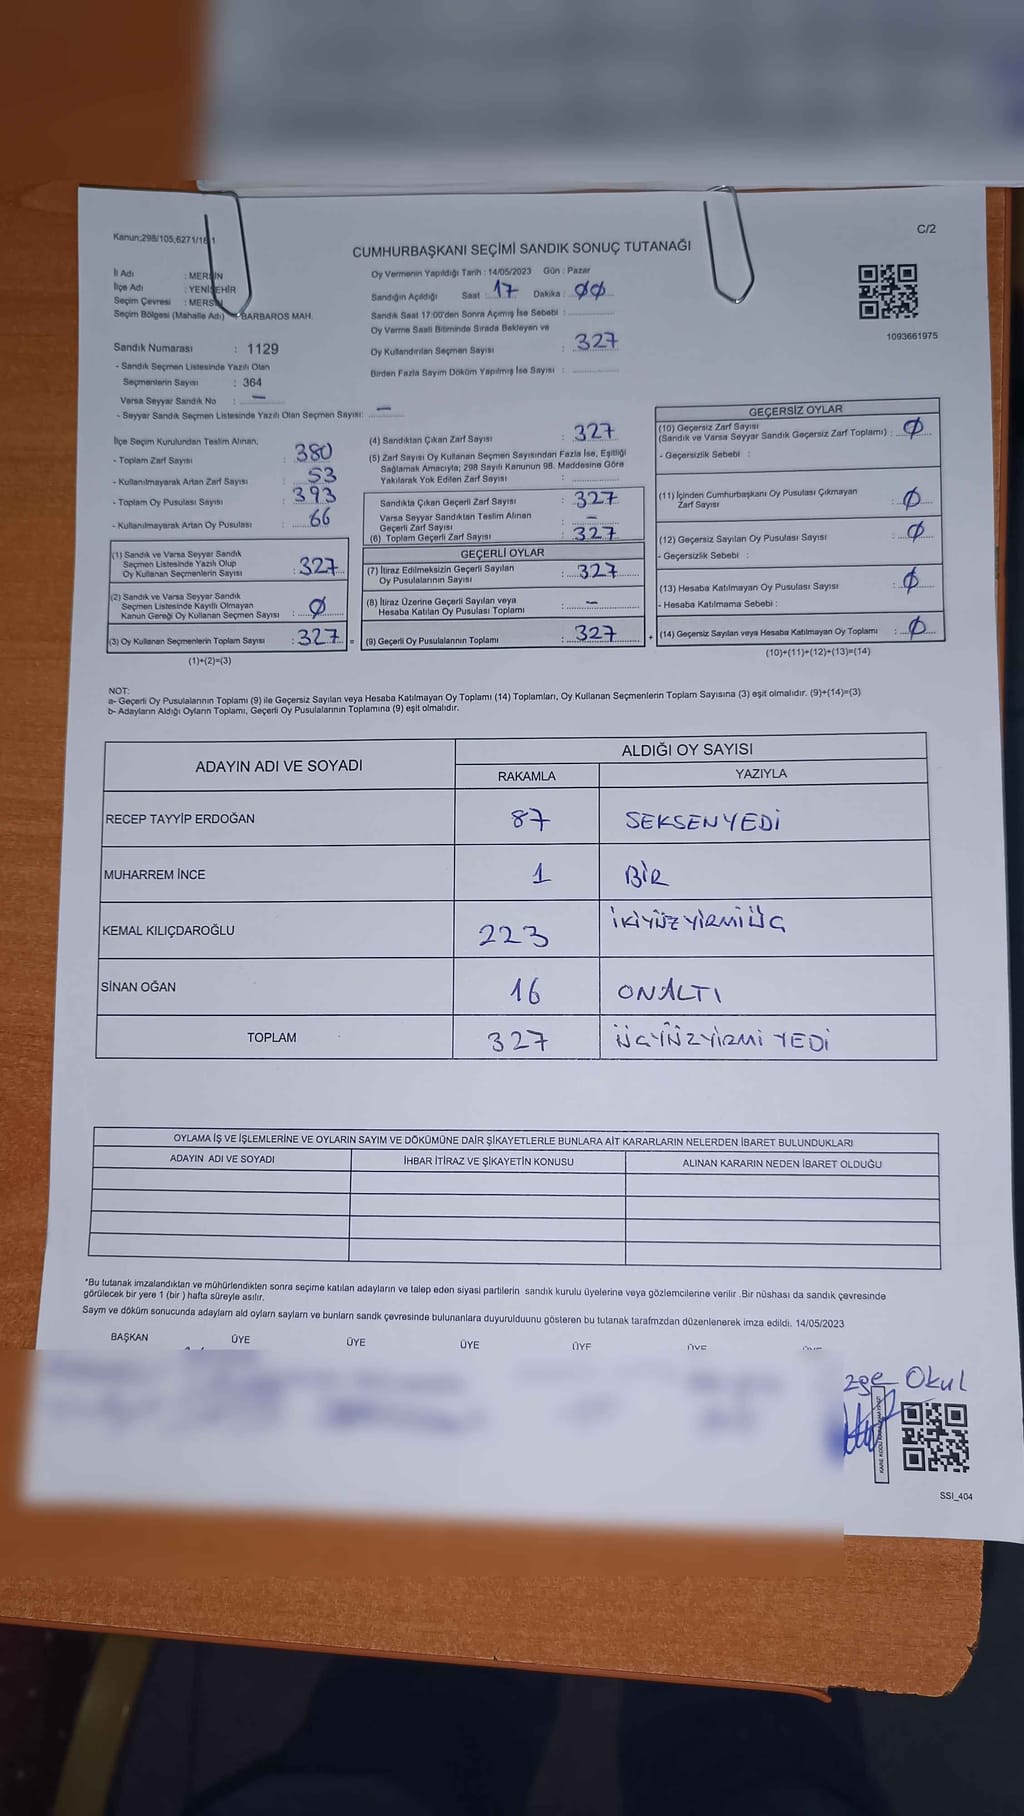 Kanun:298/105,6271/18/1
C/2
CUMHURBAŞKANI SEÇİMİ SANDIK SONUÇ TUTANAĞI
İl Adı : MERSİN
İlçe Adı : YENİŞEHİR
Seçim Çevresi : MERSİN
Seçim Bölgesi (Mahalle Adı) BARBAROS MAH.
Sandık Numarası : 1129
- Sandık Seçmen Listesinde Yazılı Olan
Seçmenlerin Sayısı : 364
Varsa Seyyar Sandık No : –
- Seyyar Sandık Seçmen Listesinde Yazılı Olan Seçmen Sayısı: –
Oy Vermenin Yapıldığı Tarih : 14/05/2023 Gün : Pazar
Sandığın Açıldığı Saat : 17 Dakika : 00
Sandık Saat 17:00'den Sonra Açımış İse Sebebi :
Oy Verme Saati Bitiminde Sırada Bekleyen ve
Oy Kullandırılan Seçmen Sayısı : 327
Birden Fazla Sayım Döküm Yapılmış İse Sayısı :
1093661975
İlçe Seçim Kurulundan Teslim Alınan;
- Toplam Zarf Sayısı : 380
- Kullanılmayarak Artan Zarf Sayısı : 53
- Toplam Oy Pusulası Sayısı : 393
- Kullanılmayarak Artan Oy Pusulası : 66
(1) Sandık ve Varsa Seyyar Sandık
Seçmen Listesinde Yazılı Olup
Oy Kullanan Seçmenlerin Sayısı : 327
(2) Sandık ve Varsa Seyyar Sandık
Seçmen Listesinde Kayıtlı Olmayan
Kanun Gereği Oy Kullanan Seçmen Sayısı : 0
(3) Oy Kullanan Seçmenlerin Toplam Sayısı : 327 =
(1)+(2)=(3)
(4) Sandıktan Çıkan Zarf Sayısı : 327
(5) Zarf Sayısı Oy Kullanan Seçmen Sayısından Fazla İse, Eşitliği
Sağlamak Amacıyla; 298 Sayılı Kanunun 98. Maddesine Göre
Yakılarak Yok Edilen Zarf Sayısı :
Sandıkta Çıkan Geçerli Zarf Sayısı : 327
Varsa Seyyar Sandıktan Teslim Alınan
Geçerli Zarf Sayısı : –
(6) Toplam Geçerli Zarf Sayısı : 327
GEÇERLİ OYLAR
(7) İtiraz Edilmeksizin Geçerli Sayılan
Oy Pusulalarının Sayısı : 327
(8) İtiraz Üzerine Geçerli Sayılan veya
Hesaba Katılan Oy Pusulası Toplamı : –
(9) Geçerli Oy Pusulalarının Toplamı : 327 +
GEÇERSİZ OYLAR
(10) Geçersiz Zarf Sayısı
(Sandık ve Varsa Seyyar Sandık Geçersiz Zarf Toplamı) : 0
- Geçersizlik Sebebi :
(11) İçinden Cumhurbaşkanı Oy Pusulası Çıkmayan
Zarf Sayısı : 0
(12) Geçersiz Sayılan Oy Pusulası Sayısı : 0
- Geçersizlik Sebebi :
(13) Hesaba Katılmayan Oy Pusulası Sayısı : 0
- Hesaba Katılmama Sebebi :
(14) Geçersiz Sayılan veya Hesaba Katılmayan Oy Toplamı : 0
(10)+(11)+(12)+(13)=(14)
NOT:
a- Geçerli Oy Pusulalarının Toplamı (9) ile Geçersiz Sayılan veya Hesaba Katılmayan Oy Toplamı (14) Toplamları, Oy Kullanan Seçmenlerin Toplam Sayısına (3) eşit olmalıdır. (9)+(14)=(3)
b- Adayların Aldığı Oyların Toplamı, Geçerli Oy Pusulalarının Toplamına (9) eşit olmalıdır.
ADAYIN ADI VE SOYADI
ALDIĞI OY SAYISI
RAKAMLA YAZIYLA
RECEP TAYYİP ERDOĞAN 87 SEKSENYEDİ
MUHARREM İNCE 1 BİR
KEMAL KILIÇDAROĞLU 223 İKİYÜZYİRMİÜÇ
SİNAN OĞAN 16 ONALTI
TOPLAM 327 ÜÇYÜZYİRMİ YEDİ
OYLAMA İŞ VE İŞLEMLERİNE VE OYLARIN SAYIM VE DÖKÜMÜNE DAİR ŞİKAYETLERLE BUNLARA AİT KARARLARIN NELERDEN İBARET BULUNDUKLARI
ADAYIN ADI VE SOYADI İHBAR İTİRAZ VE ŞİKAYETİN KONUSU ALINAN KARARIN NEDEN İBARET OLDUĞU
*Bu tutanak imzalandıktan ve mühürlendikten sonra seçime katılan adayların ve talep eden siyasi partilerin sandık kurulu üyelerine veya gözlemcilerine verilir .Bir nüshası da sandık çevresinde
görülecek bir yere 1 (bir ) hafta süreyle asılır.
Sayım ve döküm sonucunda adaylarn ald oylarn saylarn ve bunlarn sandk çevresinde bulunanlara duyurulduunu gösteren bu tutanak tarafmzdan düzenlenerek imza edildi. 14/05/2023
BAŞKAN ÜYE ÜYE ÜYE ÜYE ÜYE
Okul
SSI_404